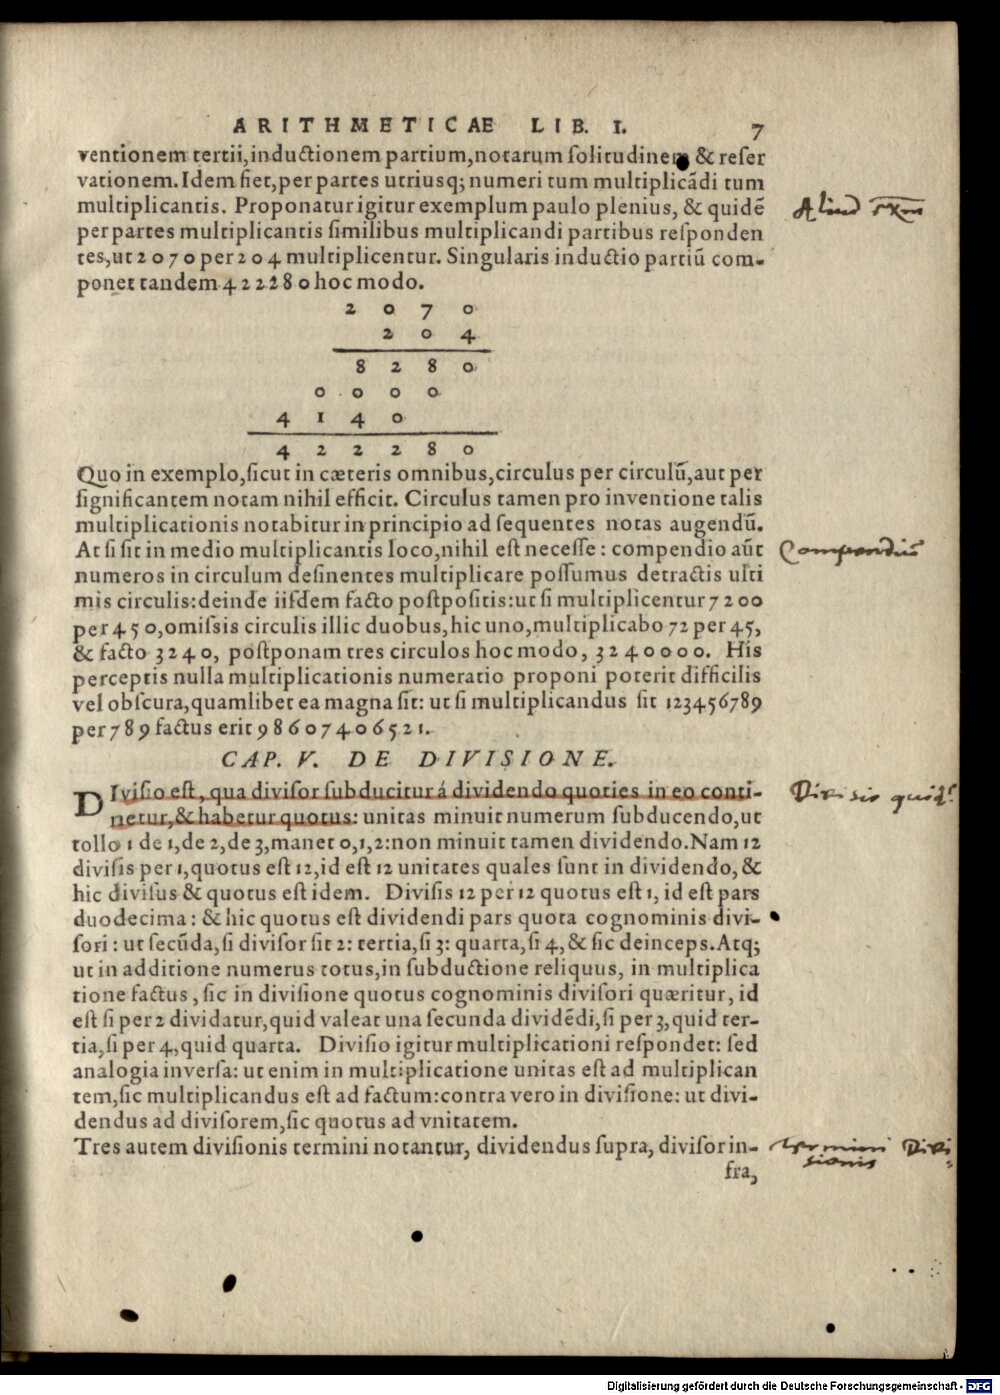 ARITHMETICAE LIB. I. 7
ventionem tertii, inductionem partium, notarum solitudinem & reser
vationem. Idem fiet, per partes utriusq; numeri tum multiplicādi tum
multiplicantis. Proponatur igitur exemplum paulo plenius, & quidē
per partes multiplicantis similibus multiplicandi partibus responden
tes, ut 2070 per 204 multiplicentur. Singularis inductio partiū com-
ponet tandem 422280 hoc modo.
2 0 7 0
2 0 4
8 2 8 0
0 0 0 0
4 1 4 0
4 2 2 2 8 0
Quo in exemplo, sicut in cæteris omnibus, circulus per circulū, aut per
significantem notam nihil efficit. Circulus tamen pro inventione talis
multiplicationis notabitur in principio ad sequentes notas augendū.
At si sit in medio multiplicantis loco, nihil est necesse: compendio aūt
numeros in circulum desinentes multiplicare possumus detractis ulti
mis circulis: deinde iisdem facto postpositis: ut si multiplicentur 7200
per 450, omissis circulis illic duobus, hic uno, multiplicabo 72 per 45,
& facto 3240, postponam tres circulos hoc modo, 3240000. His
perceptis nulla multiplicationis numeratio proponi poterit difficilis
vel obscura, quamlibet ea magna sit: ut si multiplicandus sit 123456789
per 789 factus erit 98607406521.
CAP. V. DE DIVISIONE.
DIvisio est, qua divisor subducitur á dividendo quoties in eo conti-
netur, & habetur quotus: unitas minuit numerum subducendo, ut
tollo 1 de 1, de 2, de 3, manet 0, 1, 2: non minuit tamen dividendo. Nam 12
divisis per 1, quotus est 12, id est 12 unitates quales sunt in dividendo, &
hic divisus & quotus est idem. Divisis 12 per 12 quotus est 1, id est pars
duodecima: & hic quotus est dividendi pars quota cognominis divi-
sori: ut secūda, si divisor sit 2: tertia, si 3: quarta, si 4, & sic deinceps. Atq;
ut in additione numerus totus, in subductione reliquus, in multiplica
tione factus, sic in divisione quotus cognominis divisori quæritur, id
est si per 2 dividatur, quid valeat una secunda dividēdi, si per 3, quid ter-
tia, si per 4, quid quarta. Divisio igitur multiplicationi respondet: sed
analogia inversa: ut enim in multiplicatione unitas est ad multiplican
tem, sic multiplicandus est ad factum: contra vero in divisione: ut divi-
dendus ad divisorem, sic quotus ad vnitatem.
Tres autem divisionis termini notantur, dividendus supra, divisor in-
fra,
Aliud
Compendiū
Divisio quid
termini Divi-
sionis
Digitalisierung gefördert durch die Deutsche Forschungsgemeinschaft - DFG